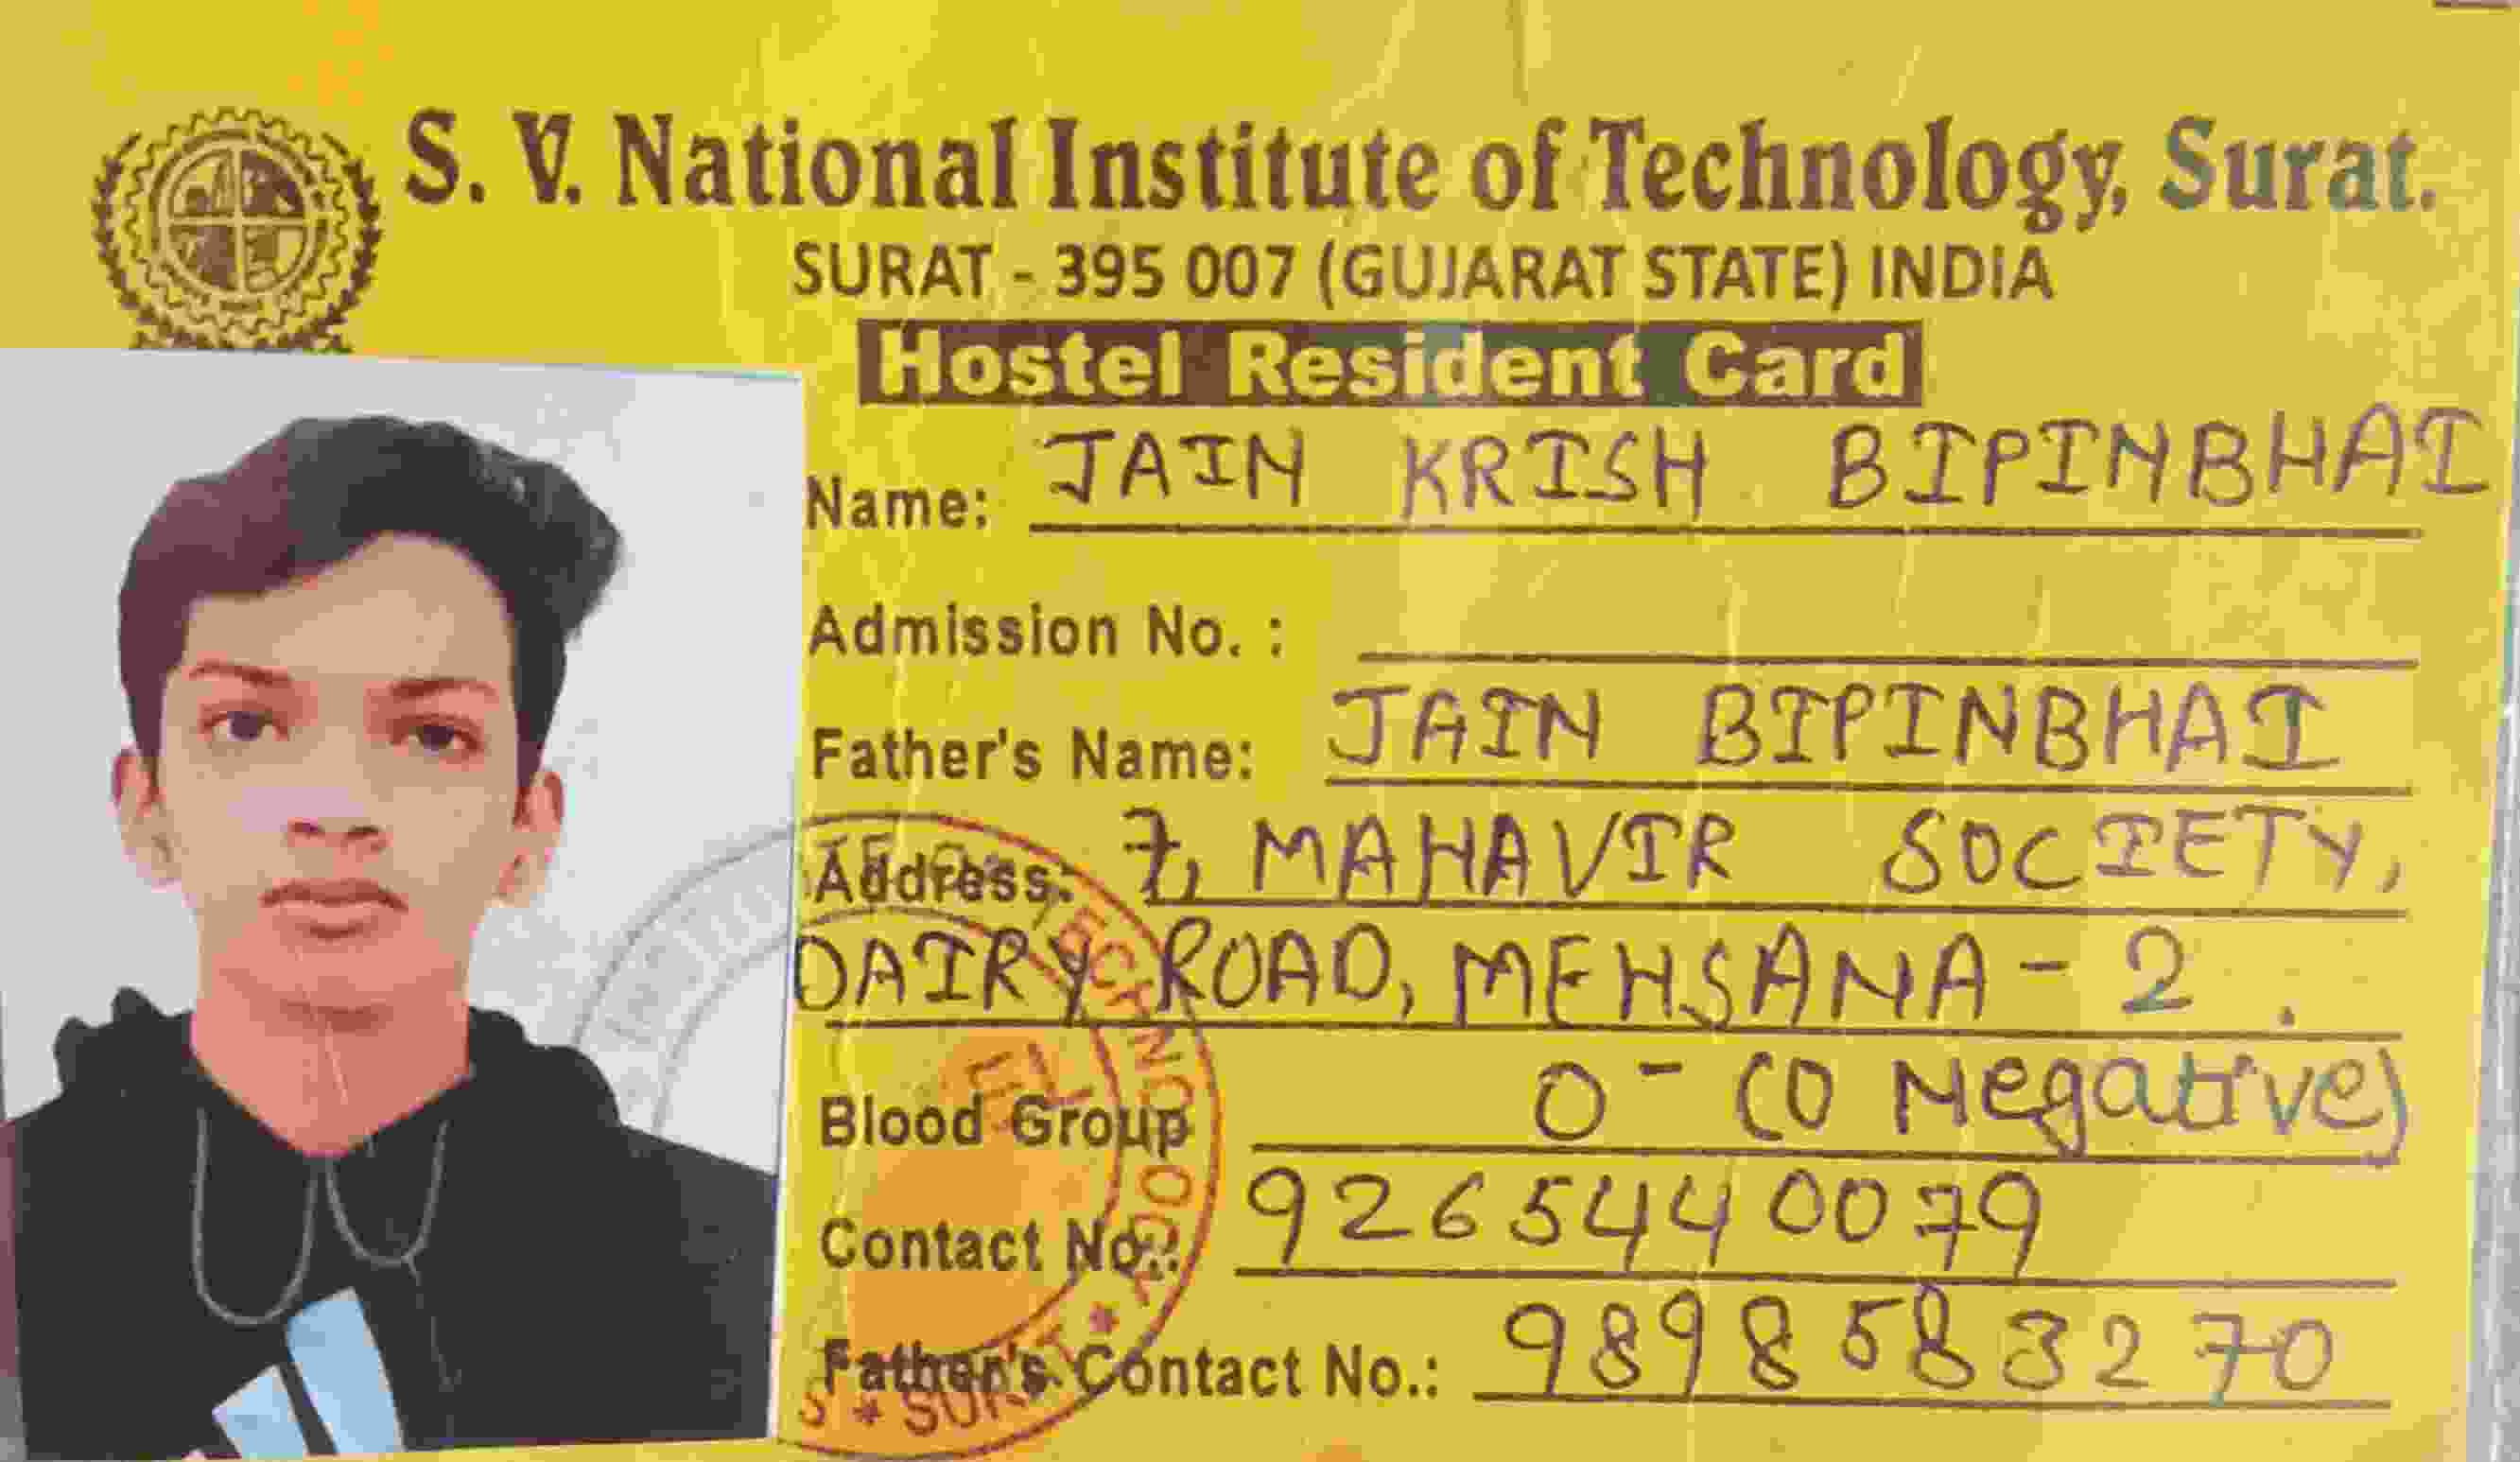 S. V. National Institute of Technology, Surat.
SURAT - 395 007 (GUJARAT STATE) INDIA
Hostel Resident Card
Name: JAIN KRISH BIPINBHAI
Admission No. :
Father's Name: JAIN BIPINBHAI
Address: 7, MAHAVIR SOCIETY,
DAIRY ROAD, MEHSANA - 2.
Blood Group O- (O Negative)
Contact No.: 9265440079
Father's Contact No.: 9898583270
TECHNOLOGY * SURAT *